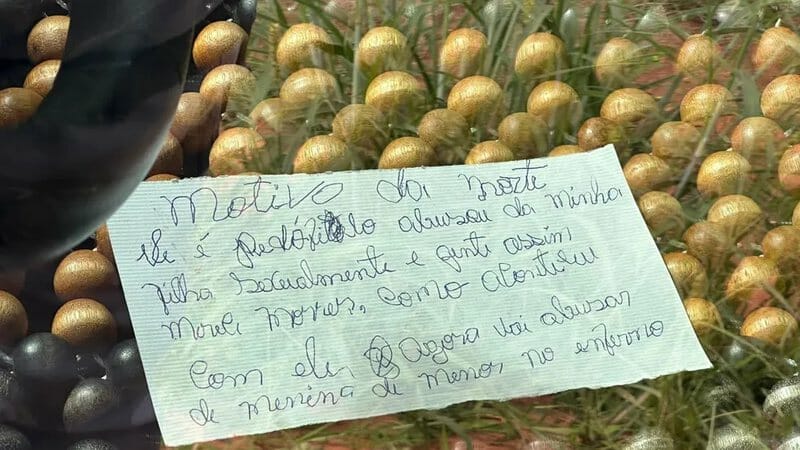 Motivo da morte
ele é pedófilo abusou da minha
filha sexualmente e gente assim
mereli morrer, como aconteceu
com ele, Agora vai abusar
de menina de menor no enferno